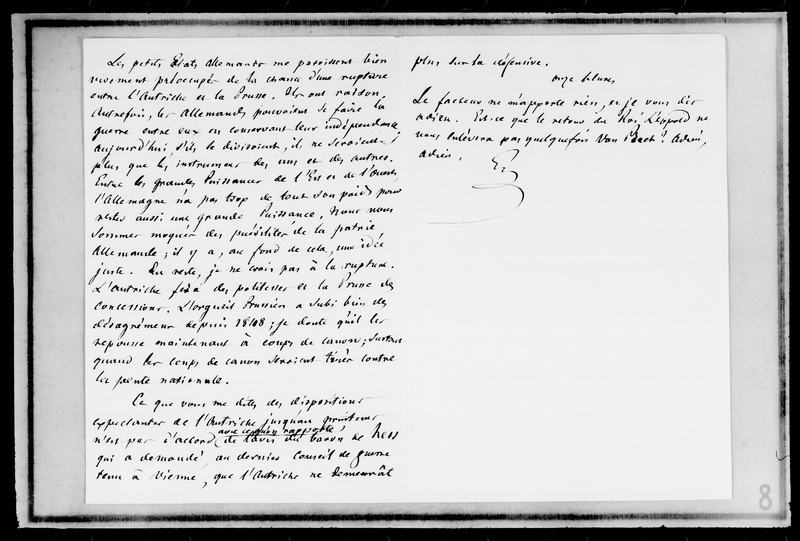 Les petits Etats allemands me paroissent bien
vivement préoccupés de la chance d'une rupture
entre l'Autriche et la Prusse. Ils ont raison.
Autrefois, les Allemands pouvoient se faire la
guerre entre eux en conservant leur indépendance.
aujourd'hui s'ils se divisoient, ils ne seroient
plus que les instrumens des uns et des autres.
Entre les grandes Puissances de l'Est et de l'Ouest
l'Allemagne n'a pas trop de tout son poids pour
rester aussi une grande Puissance. Nous nous
sommes moqués des puérilités de la patrie
Allemande ; il y a, au fond de cela, une idée
juste. Du reste, je ne crois pas à la rupture.
L'Autriche fera des politesses et la Prusse des
concessions. L'orgueil Prussien a subi bien des
désagrémens depuis 1848 ; je doute qu'il les
repousse maintenant à coups de canon ; surtout
quand les coups de canon seroient tirés contre
la pointe nationale.
Ce que vous me dites des dispositions
expectantes de l'Autriche jusqu'au printems
avec ce qu'on rapporte
n'est pas d'accord de l'avis du baron de Hess
qui a demandé, au dernier Conseil de guerre
tenu à Vienne, que l'Autriche ne demeurât
plus sur la défensive.
onze heures
Le facteur ne m'apporte rien, et je vous dis
adieu. Est-ce que le retour du Roi Léopold ne
vous enlèvera pas quelquefois Van Praet ? Adieu,
adieu.
8